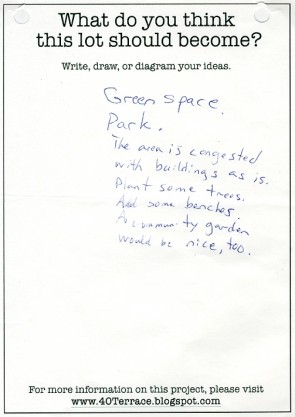 What do you think
this lot should become?
Write, draw, or diagram your ideas.
Green space.
Park.
The area is congested
with buildings as is.
Plant some trees.
Add some benches.
A community garden
would be nice, too.
For more information on this project, please visit
www.40Terrace.blogspot.com